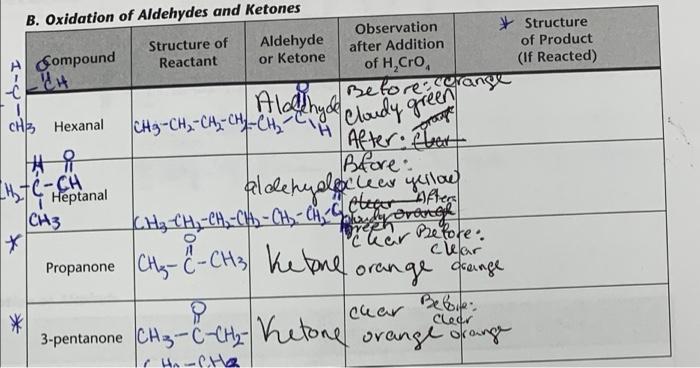 B. Oxidation of Aldehydes and Ketones
Compound
Structure of Reactant
Aldehyde or Ketone
Observation after Addition of H₂CrO₄
* Structure of Product (If Reacted)
H O
-C-CH
CH3
Hexanal
CH3-CH2-CH2-CH2-CH2-C
O
H
Aldehyde
Before: orange
Cloudy green
After:
H O
CH2-C-CH
CH3
Heptanal
CH3-CH2-CH2-CH2-CH2-CH2-C
aldehyde
Bfore:
clear yellow
After
cloudy orange
green
*
Propanone
O
CH3-C-CH3
Ketone
clear Before:
clear
orange orange
*
3-pentanone
O
CH3-C-CH2-
CH2-CH3
Ketone
clear Before:
clear
orange orange